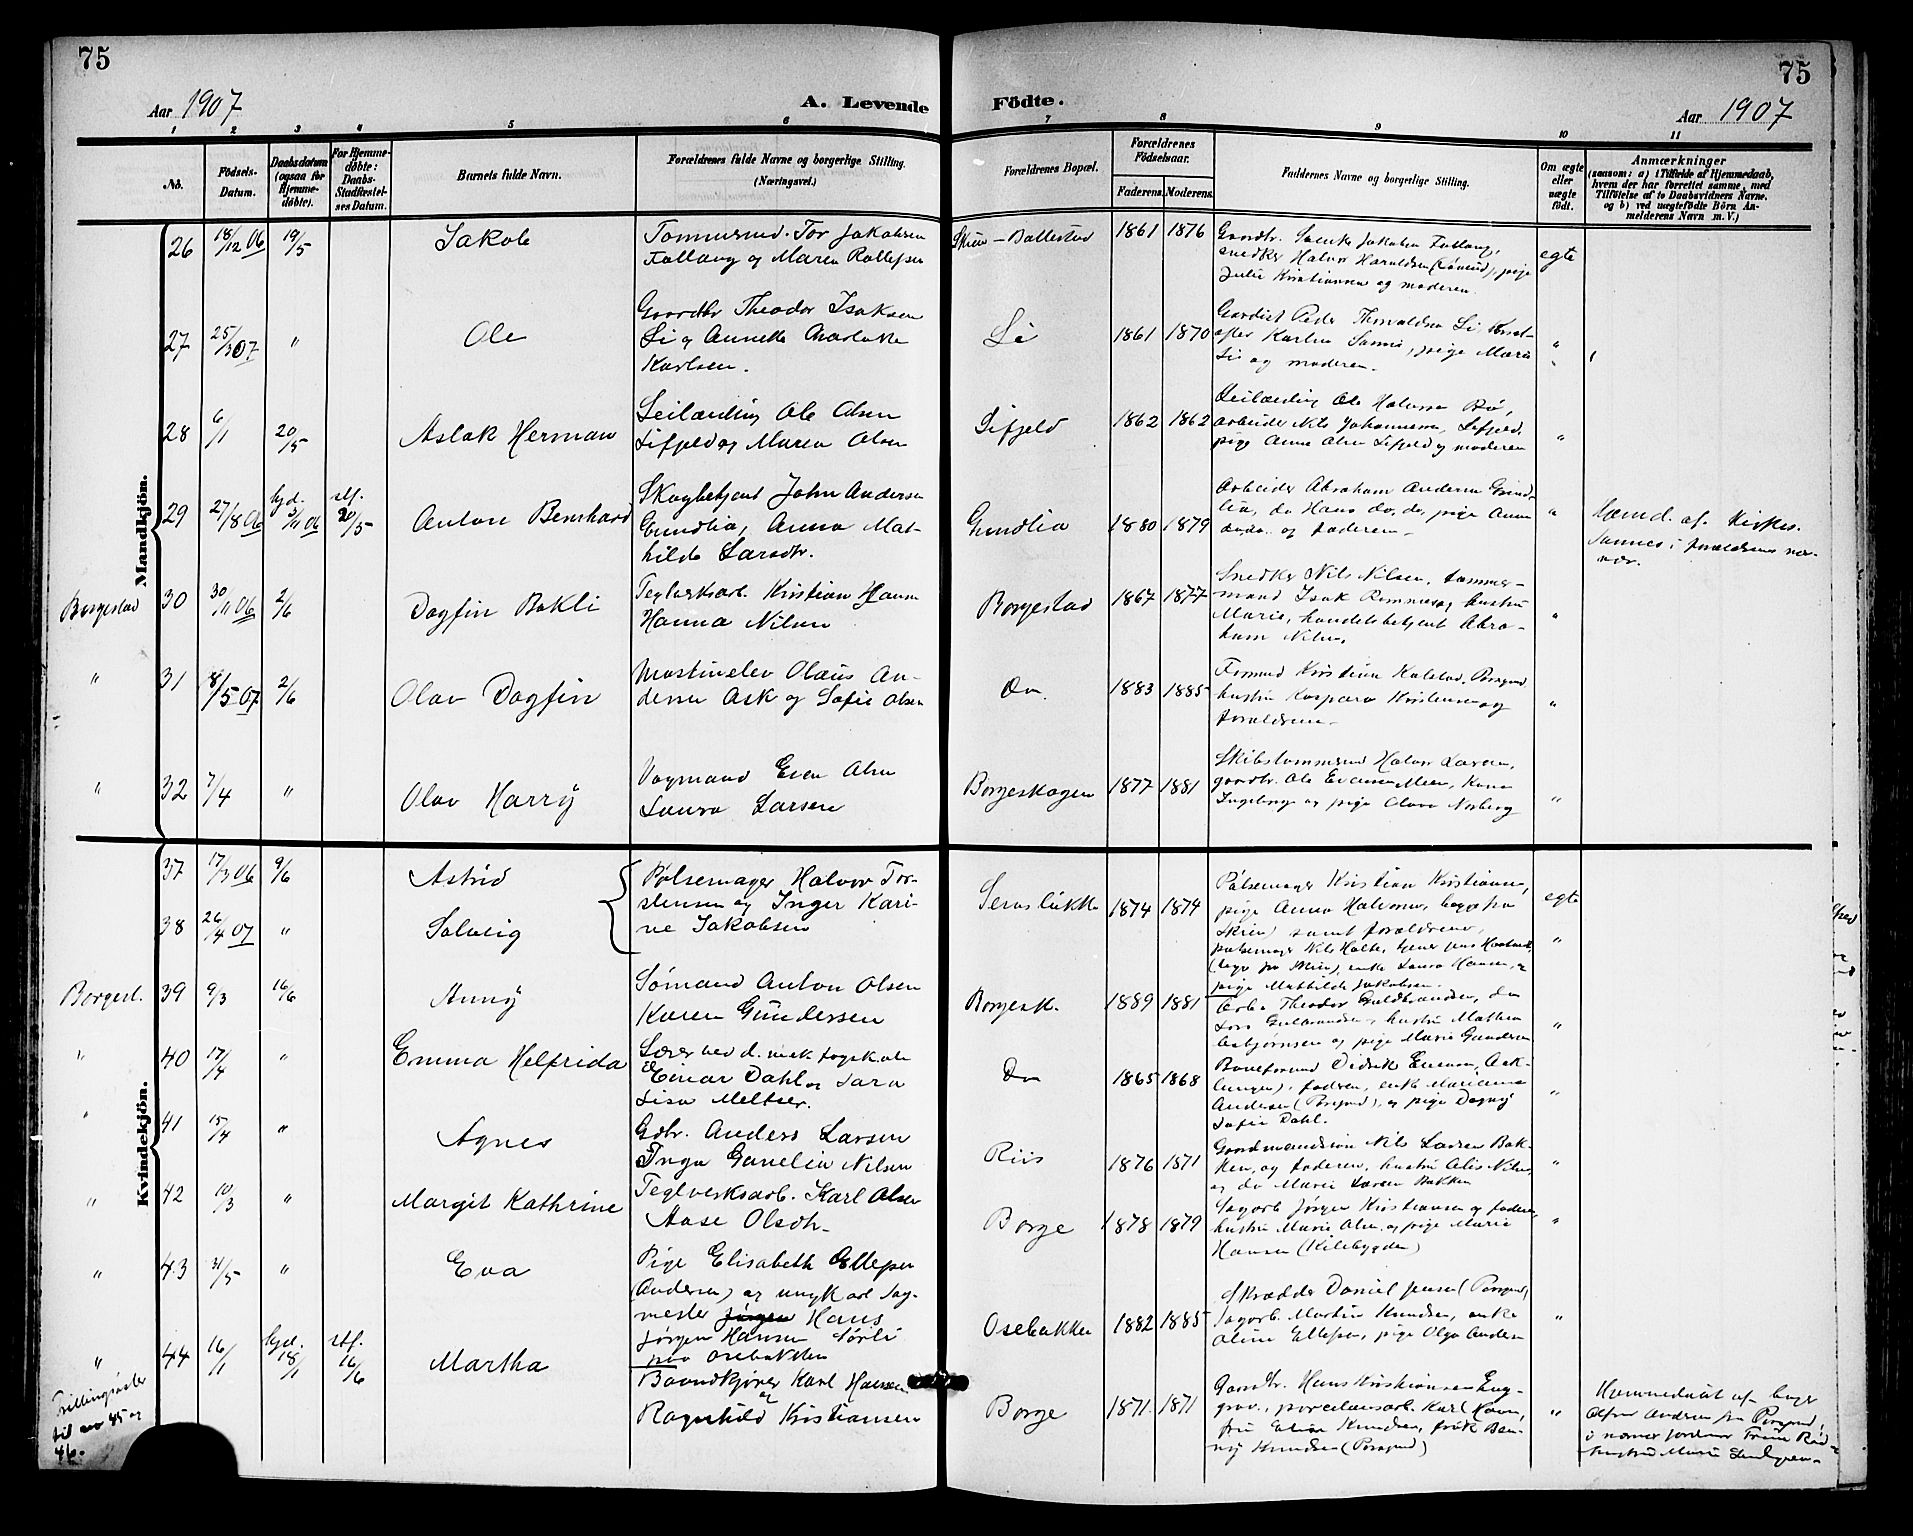 75
75
Aar 1907
A. Levende
Födte.
Aar 1907
1 2 3 4 5 6 7 8 9 10 11
No.
Födsels-
Datum.
Daabsdatum
(ogsaa for
Hjemme-
döbte).
For Hjemme-
döbte:
Daabs-
Stadfæstel-
ses Datum.
Barnets fulde Navn.
Forældrenes fulde Navne og borgerlige Stilling.
(Næringsvei.)
Forældrenes Bopæl.
Forældrenes
Födselsaar.
Faderens.
Moderens.
Faddernes Navne og borgerlige Stilling.
Om ægte
eller
uægte
födt.
Anmærkninger
(saasom: a) i Tilfælde af Hjemmedaab,
hvem der har forrettet samme, med
Tilföielse af to Daabsvidners Navne,
og b) ved uægtefödte Börn An-
melderens Navn m. V.)
Mandkjön.
26 18/12 06 19/5 Jakob
Tømmermd. Tor Jakobsen
og Maren Rollefsen
Skien - Bollestad 1861 1876
Gaardbr.
snedker Halvor Haraldsen
Julie Kristiansen og moderen
egte
27 25/3 07 " Ole
Gaardbr Theodor Isaksen
Li og Annette Charlotte
Karlsen.
Li 1861 1870
Li og moderen.
"
28 6/1 20/5 Aslak Herman
Leilænding Ole Olsen
Lifjeld og Maren Olsen
Lifjeld 1862 1862
Leilænding Ole Halvorsen Bø,
arbeider Nils Johannesen, Lifjeld,
pige Anna Olsen Lifjeld og moderen
"
29 27/8 06 hjd. 5/11 06 stf. 20/5 Anton Bernhard
Skogbetjent John Andersen
Grindlia, Anna Mat-
hilde Larsdtr.
Grindlia 1880 1879
Arbeider Abraham Andersen Grind-
lia, do Hans do, do, pige Anna
do, do. og faderen
"
Hjemd. af Kirkes.
Sannes i forældrenes nær-
vær.
Borgestad 30 30/11 06 2/6 Dagfin Bakli
Teglverksarb. Kristian Hansen
Hanna Nilsen
Borgestad 1867 1877
Snedker Nils Nilsen, tømmer-
mand Isak hustru
Marie, handelsbetjent Abra-
ham Nilsen.
"
" 31 18/5 07 2/6 Olav Dagfin
Maskinelev Olaus An-
dersen Ask og Sofie Olsen
Do. 1883 1885
Kristian Halstad, Porsgrund,
hustru Kaspara Kristensen og
forældrene
"
" 32 7/4 " Olav Harry
Vognmand Even Olsen
Laura Larsen
Borgeskogen 1877 1881
Skibstømmermd Halvor Larsen,
gaardbr. Ole Evensen Moen, Kone
Ingeborg og pige Olava Norberg
"
Kvindekjön.
37 17/3 06 9/6 Astrid
Pølsemager Halvor Tor-
stensen og Inger Kari-
ne Jakobsen
38 26/4 07 " Solveig
1874 1874
Pølsemager Kristian Kristiansen,
pige Anna Halvorsen, begge fra
Skien, samt forældrene,
pølsemager Nils Holte,
(begge fra Skien), enke Laura Hansen, og
pige Mathilde Jakobsen.
egte
"
Borgest. 39 9/3 16/6 Anny
Sømand Anton Olsen
Karen Gundersen
Borgesk. 1889 1881
Arb. Theodor Guldbrandsen, do
Lars Gulbrandsen, hustru Mathea
Asbjørnsen og pige Marie Gundersen
"
" 40 17/4 " Emma Helfrida
Lærer ved d. mek fagskole
Einar Dahl og Sara
Lisa Meltzer.
Do 1865 1868
Baneformand Didrik Evensen, Ask-
lungen, fadren, enke Marianne
Andersen (Porsgrund), og pige Dagny
Sofie Dahl.
"
" 41 15/4 " Agnes
Gdbr. Anders Larsen
Inga Gunelia Nilsen
Riis 1876 1871
Gaardmandssøn Nils Larsen Bak-
ken, og faderen, hustru Alis Nilsen,
og do Marie Larsen Bakken
"
" 42 10/3 " Margit Kathrine
Teglverksarb. Karl Olsen
Aase Olsdtr.
Borge 1878 1879
Sagarb. Jørgen Kristiansen og faderen,
hustru Marie Olsen, og pige Marie
Hansen (Kilebygden)
"
" 43 31/5 " Eva
Pige Elisabeth Ellefsen
(Andersen) og ungk arb Sag-
mester Jørgen Hans
Jørgen Hansen Sørli
paa Osebakken
Osebakken 1882 1885
Skrædder Daniel Jensen (Porsgrund),
sagarb. Martin Knudsen, enke
Oline Ellefsen, pige Olga Andersen
"
" 44 16/1 hjd. 18/1 stf. 16/6 Martha
Baandkjører Karl Hansen
og
Ragnhild Kristiansen
Borge 1871 1871
Gaardbr. Hans Kristiansen Eng-
grav., porcelænsarb. Karl Hansen,
fru Eline Knudsen, frøk Ben-
ny Knudsen (Porsgrund)
"
Hjemmedøbt af læge
Andersen fra Porsgrund,
i nærvær jordmor
hustru Marie Lindgren
Trillingsøster
til no 45 og
46.